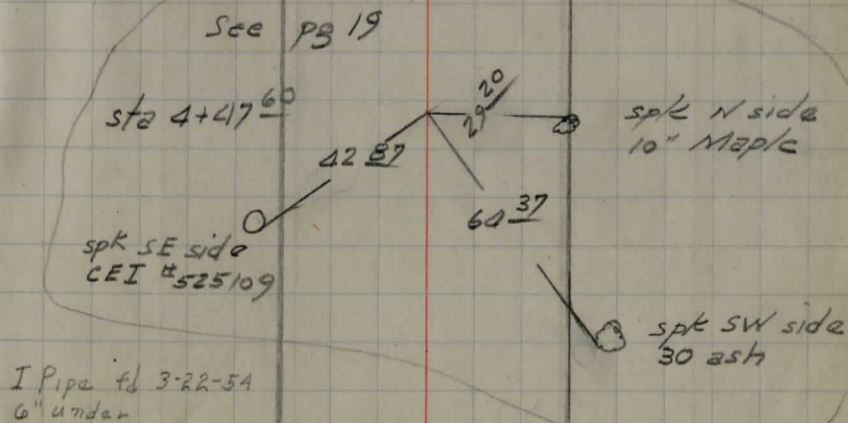 See pg 19
sta 4+47 60
29 20
spk N side
10" Maple
42 87
64 37
spk SE side
CEI #525109
spk SW side
30 ash
I Pipe fd 3-22-54
6" under